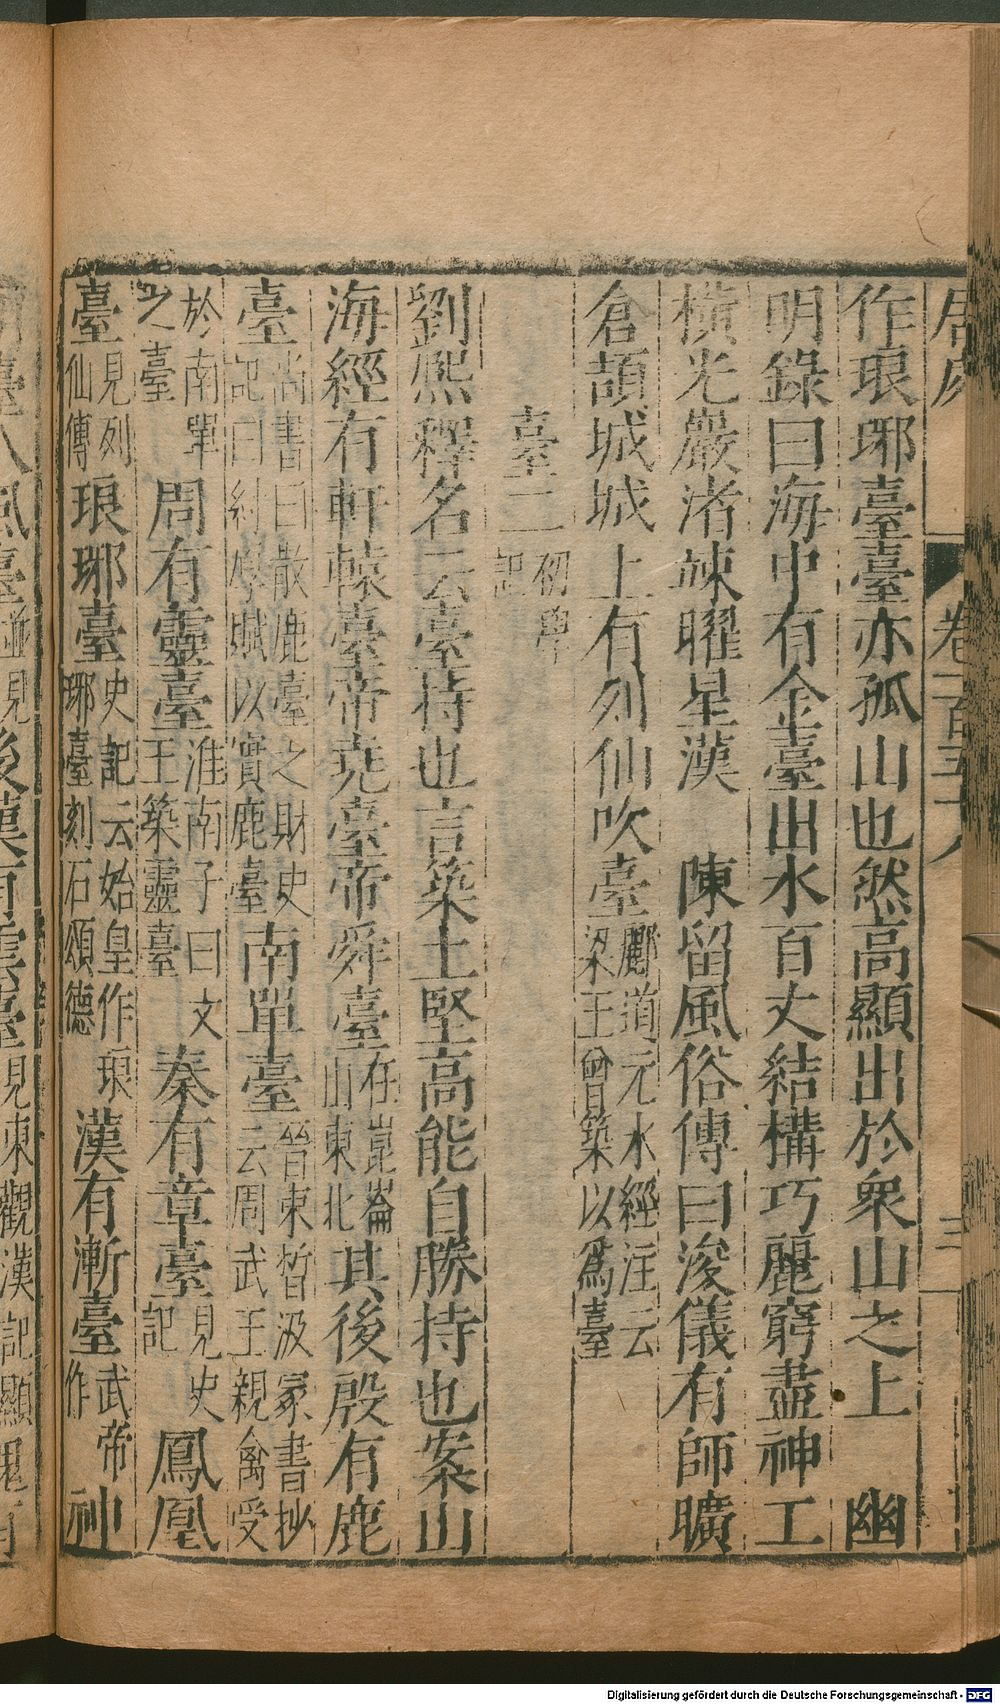 居處 卷一百五十八 三
作琅琊臺臺亦孤山也然高顯出於衆山之上 幽
明錄曰海中有金臺出水百丈結構巧麗窮盡神工
橫光巖渚竦曜星漢 陳留風俗傳曰浚儀有師曠
倉頡城城上有列仙吹臺酈道元水經注云梁王曾築以爲臺
臺二初學記
劉熙釋名云臺持也言築土堅高能自勝持也案山
海經有軒轅臺帝堯臺帝舜臺在崑崙山東北其後殷有鹿
臺尚書曰散鹿臺之財史記曰紂厚賦以實鹿臺南單臺晉東晳汲冢書抄云周武王親禽受
於南單之臺周有靈臺淮南子曰文王築靈臺秦有章臺見史記鳳凰
臺見列仙傳琅琊臺史記云始皇作琅琊臺刻石頌德漢有漸臺武帝作神
臺八風臺並見後漢有雲臺見東觀漢記顯
Digitalisierung gefördert durch die Deutsche Forschungsgemeinschaft - DFG